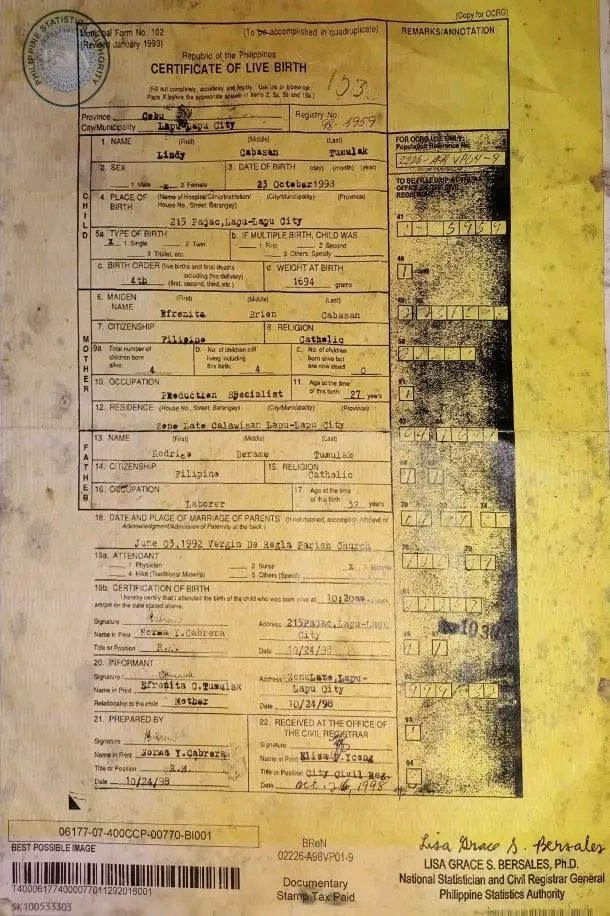 (Copy for OCRG)
PHILIPPINE STATISTICS AUTHORITY
Municipal Form No. 102
(Revised January 1993)
(To be accomplished in quadruplicate)
REMARKS/ANNOTATION
Republic of the Philippines
CERTIFICATE OF LIVE BIRTH
(Fill out completely, accurately and legibly. Use ink or typewriter.
Place X before the appropriate answer in items 2, 5a, 5b and 19a.)
Province Cebu
City/Municipality Lapu-Lapu City
Registry No.
98-5959
FOR OCRG USE ONLY:
Population Reference No.
CHILD
1. NAME (First) (Middle) (Last)
Lindy Cabasan Tumulak
2. SEX
1 Male X 2 Female
3. DATE OF BIRTH (day) (month) (year)
23 October 1998
TO BE FILLED UP AT THE
OFFICE OF THE CIVIL
REGISTRAR
4. PLACE OF BIRTH (Name of Hospital/Clinic/Institution/
House No., Street, Barangay) (City/Municipality) (Province)
215 Pajac,Lapu-Lapu City
41
5a. TYPE OF BIRTH
X 1 Single 2 Twin
3 Triplet, etc.
b. IF MULTIPLE BIRTH, CHILD WAS
1 First 2 Second
3 Others, Specify
48
c. BIRTH ORDER (live births and fetal deaths
including this delivery)
4th (first, second, third, etc.)
d. WEIGHT AT BIRTH
1694 grams
MOTHER
6. MAIDEN NAME (First) (Middle) (Last)
Efrenita Brion Cabasan
7. CITIZENSHIP
Filipino
8. RELIGION
Catholic
9a. Total number of
children born
alive: 4
b. No. of children still
living including
this birth: 4
c. No. of children
born alive but
are now dead: 0
10. OCCUPATION
Production Specialist
11. Age at the time
of this birth: 27 years
12. RESIDENCE (House No., Street, Barangay) (City/Municipality) (Province)
Zone Lato Calawisan Lapu-Lapu City
FATHER
13. NAME (First) (Middle) (Last)
Rodrigo Berame Tumulak
14. CITIZENSHIP
Filipino
15. RELIGION
Catholic
16. OCCUPATION
Laborer
17. Age at the time
of this birth: 32 years
18. DATE AND PLACE OF MARRIAGE OF PARENTS (If not married, accomplish Affidavit of
Acknowledgment/Admission of Paternity at the back.)
June 03,1992 Vergin De Regla Parish Church
19a. ATTENDANT
1 Physician 2 Nurse X 3 Midwife
4 Hilot (Traditional Midwife) 5 Others (Specify
19b. CERTIFICATION OF BIRTH
I hereby certify that I attended the birth of the child who was born alive at 10:20am o'clock
am/pm on the date stated above.
Signature
Name in Print Norma Y.Cabrera
Title or Position R.M.
Address 215Pajac,Lapu-Lapu
City
Date 10/24/98
20. INFORMANT
Signature
Name in Print Efrenita C.Tumulak
Relationship to the child Mother
Address ZoneLato,Lapu-
Lapu City
Date 10/24/98
21. PREPARED BY
Signature
Name in Print Norma Y.Cabrera
Title or Position R.M.
Date 10/24/98
22. RECEIVED AT THE OFFICE OF
THE CIVIL REGISTRAR
Signature
Name in Print
Title or Position City Civil Reg.
Date Oct. 26, 1998
06177-07-400CCP-00770-BI001
BEST POSSIBLE IMAGE
T400061774000077011292016001
SK100533303
BReN
02226-A98VP01-9
Documentary
Stamp Tax Paid
Lisa Grace S. Bersales
LISA GRACE S. BERSALES, Ph.D.
National Statistician and Civil Registrar General
Philippine Statistics Authority